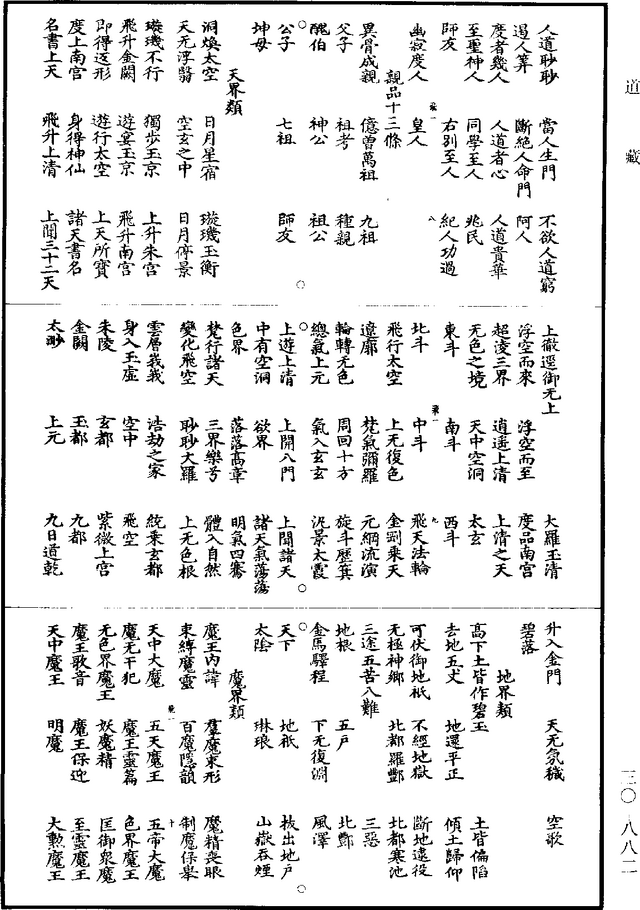 道藏
人道眇眇 當人生門 不欲人道窮
遏人筭 斷絕人命門 阿人
度者幾人 人道者心 人道貴華
至聖神人 同學至人 兆民
師友 右別至人 紀人功過
幽寂度人 皇人
親品十三條
異骨成親 億曾萬祖 九祖
父子 祖考 種親
醜伯 神公 祖公
公子 七祖 師友
坤母
天界類
洞煥太空 日月星宿 璇璣玉衡
天无浮翳 空玄之中 日月停景
璇璣不行 獨步玉京 上升朱宮
飛升金闕 遊宴玉京 飛升南宮
即得返形 遊行太空 上天所寶
度上南宮 身得神仙 諸天書名
名書上天 飛升上清 上聞三十二天
上徹遥御无上
浮空而來 浮空而至 大羅玉清
超淩三界 逍遥上清 度品南宮
无色之境 天中空洞 上清之天
東斗 南斗 太玄
北斗 中斗 西斗
飛行太空 上无復色 飛天法輪
遼廓 梵氣彌羅 金剛乘天
輪轉无色 周回十方 元綱流演
總氣上元 氣入玄玄 旋斗歷箕
上遊上清 上開八門 汎景太霞
中有空洞 欲界 上聞諸天
色界 落落高章 諸天氣蕩蕩
梵行諸天 三界樂兮 明氣四騫
變化飛空 眇眇大羅 體入自然
雲層峩峩 浩劫之家 上无色根
身入玉虛 空中 統乘玄都
朱陵 玄都 飛空
金闕 玉都 紫微上宮
太眇 上元 九都
九日道乾
升入金門 天无氛穢 空歌
碧落
地界類
高下土皆作碧玉 土皆偏陷
去地五丈 地還平正 傾土歸仰
可伏御地祇 不經地獄 斷地逺役
无極神鄉 北都羅酆 北都寒池
三途五苦八難 三惡
地根 五戶 北酆
金馬驛程 下无復淵 風澤
天下 地祇 拔出地戶
太陰 琳琅 山嶽吞煙
魔界類
魔王內諱 羣魔束形 魔精喪眼
束縛魔靈 百魔隱韻 制魔保舉
天中大魔 五天魔王 五帝大魔
魔无干犯 魔王靈篇 色界魔王
无色界魔王 妖魔精 匡御衆魔
魔王歌音 魔王保迎 至靈魔王
天中魔王 明魔 大勲魔王
三〇八八二